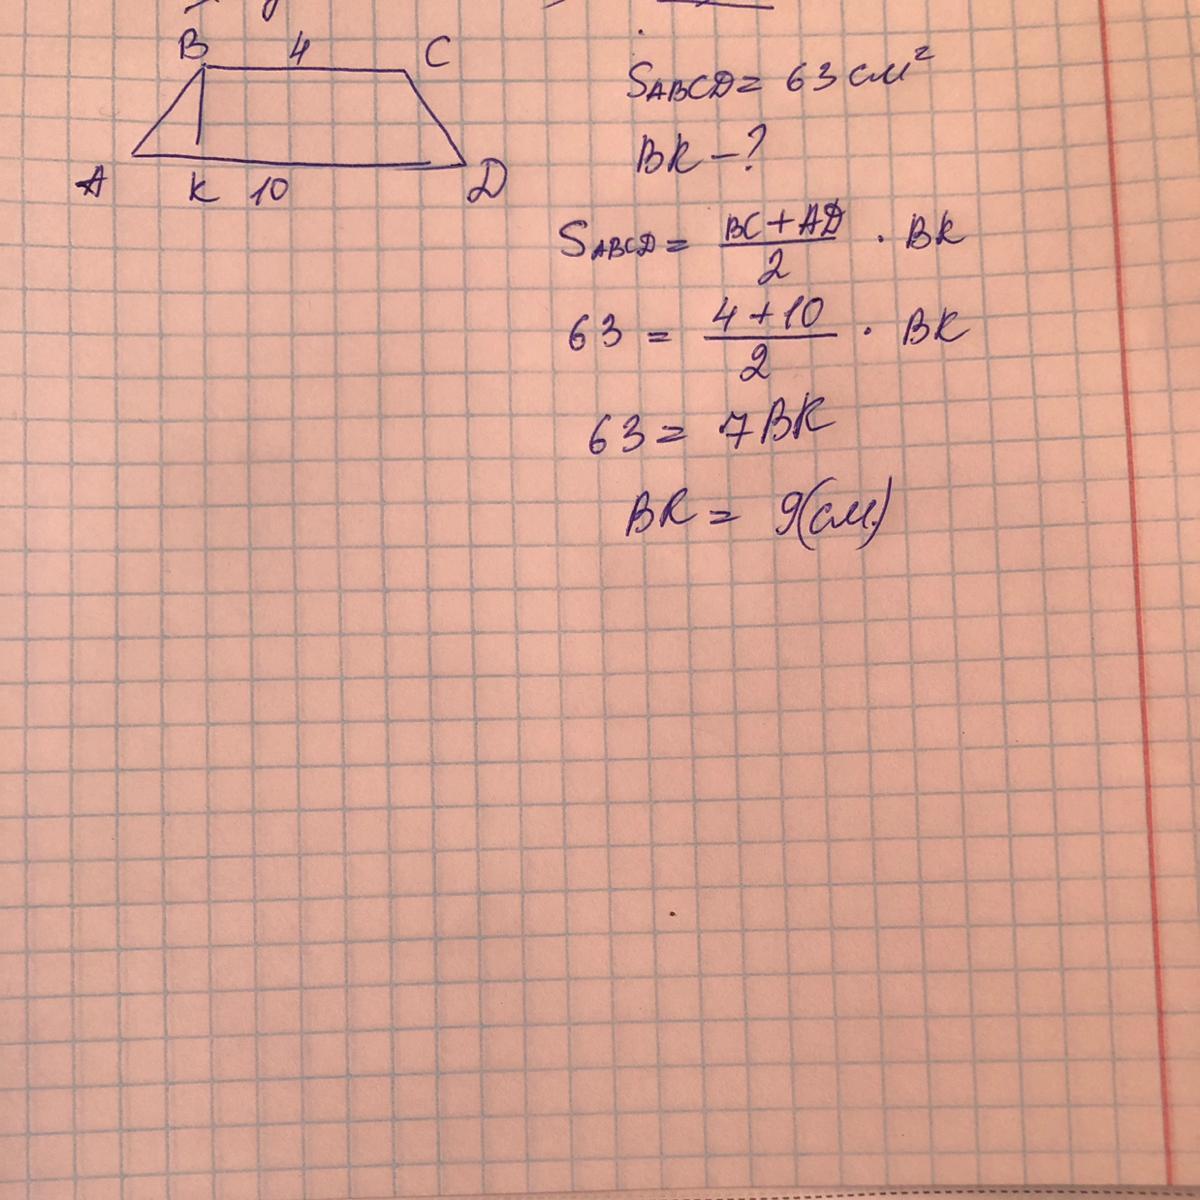 B 4 C
A K 10 D
S_ABCD = 63 см²
BK - ?
S_ABCD = (BC + AD)/2 · BK
63 = (4 + 10)/2 · BK
63 = 7BK
BK = 9(см.)